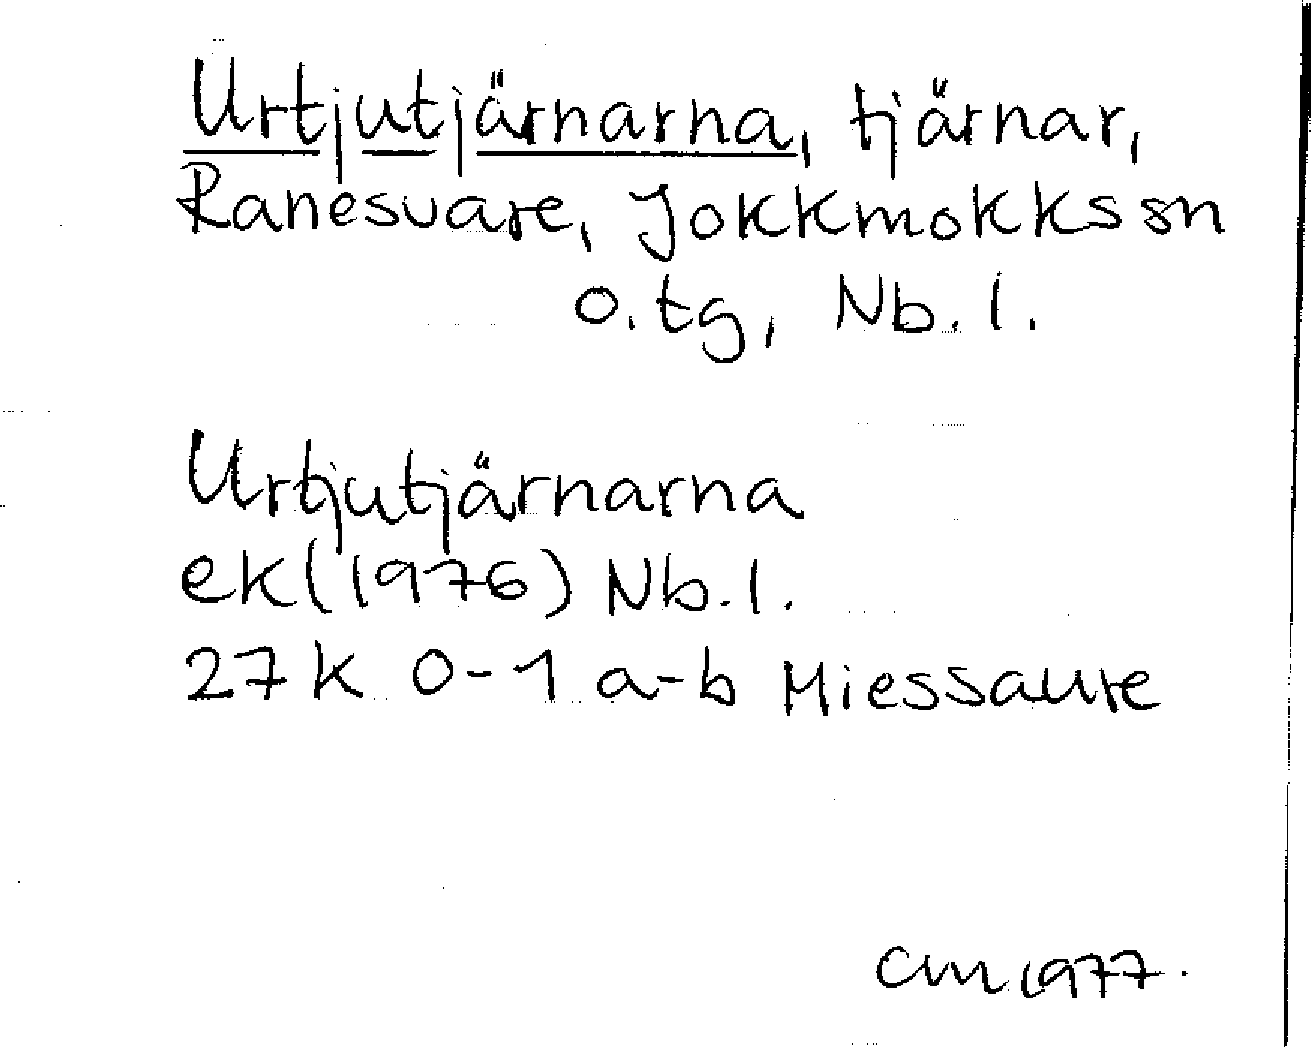 Urtjutjärnarna, tjärnar,
Ranesvare, Jokkmokks sn
o. tg, Nb. l.
Urtjutjärnarna
ek (1976) Nb. l.
27K 0-1 a-b Miessaure
CM 1977.